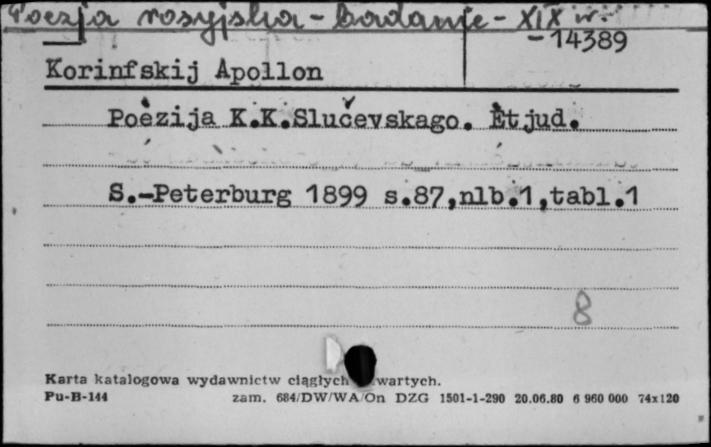 Poezja rosyjska - badanie - XIX w.
-14389
Korinfskij Apollon
Poèzija K.K.Slučevskago. Ètjud.
S.-Peterburg 1899 s.87,nlb.1,tabl.1
8
Karta katalogowa wydawnictw ciągłych wartych.
Pu-B-144 zam. 684/DW/WA/On DZG 1501-1-290 20.06.80 6 960 000 74x120